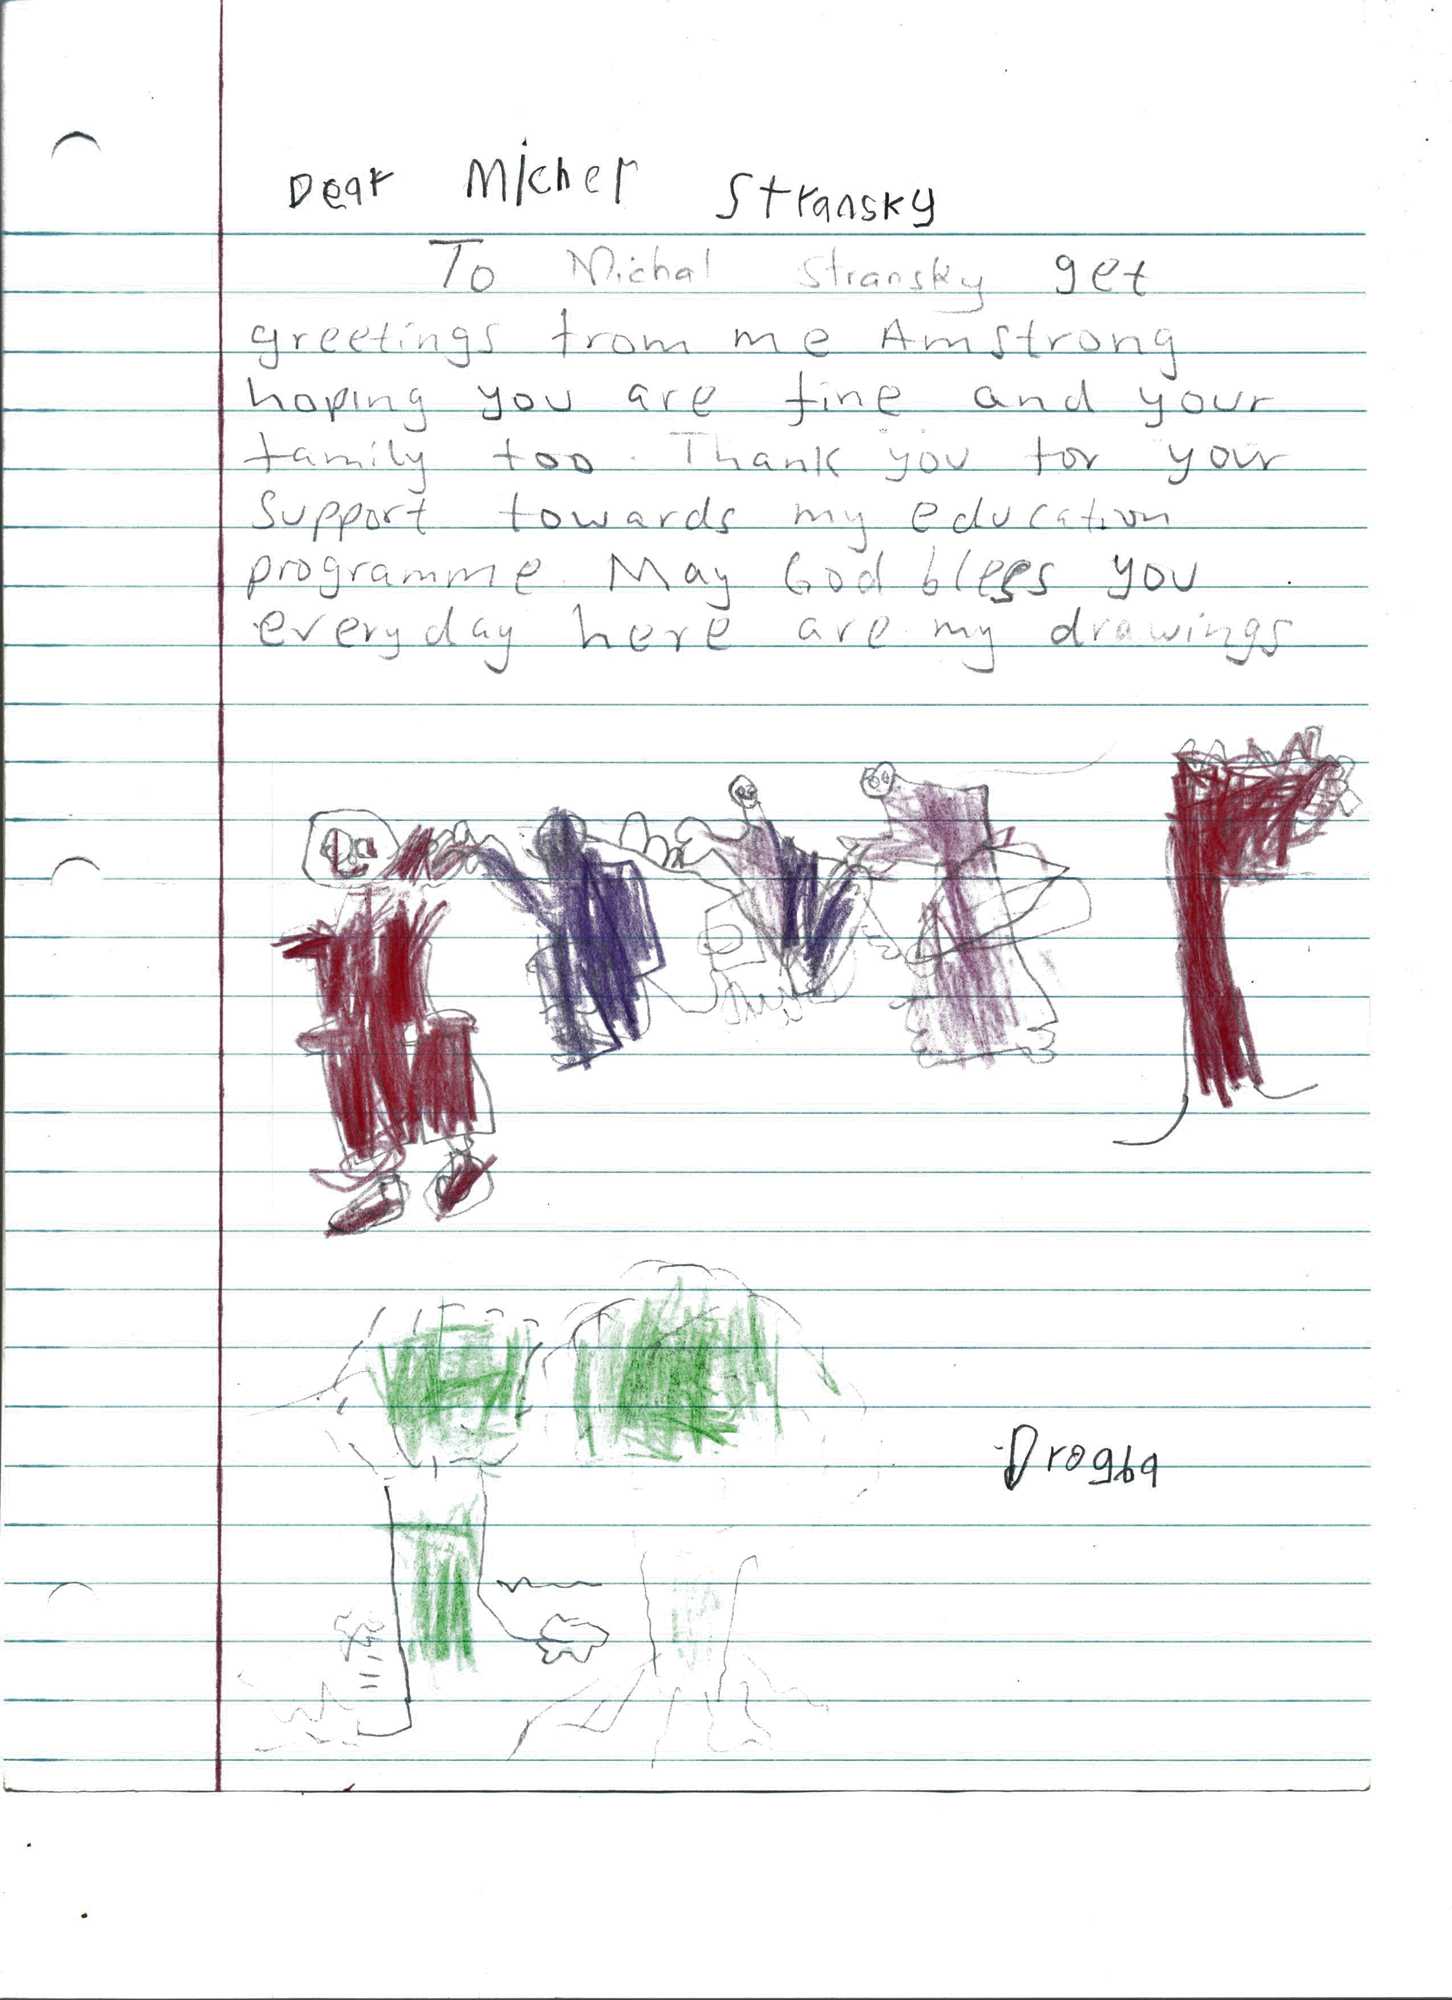 Dear Micher Stransky
To Michal Stransky get
greetings from me Amstrong
hoping you are fine and your
family too. Thank you for your
support towards my education
programme. May God bless you
everyday here are my drawings
Drogba